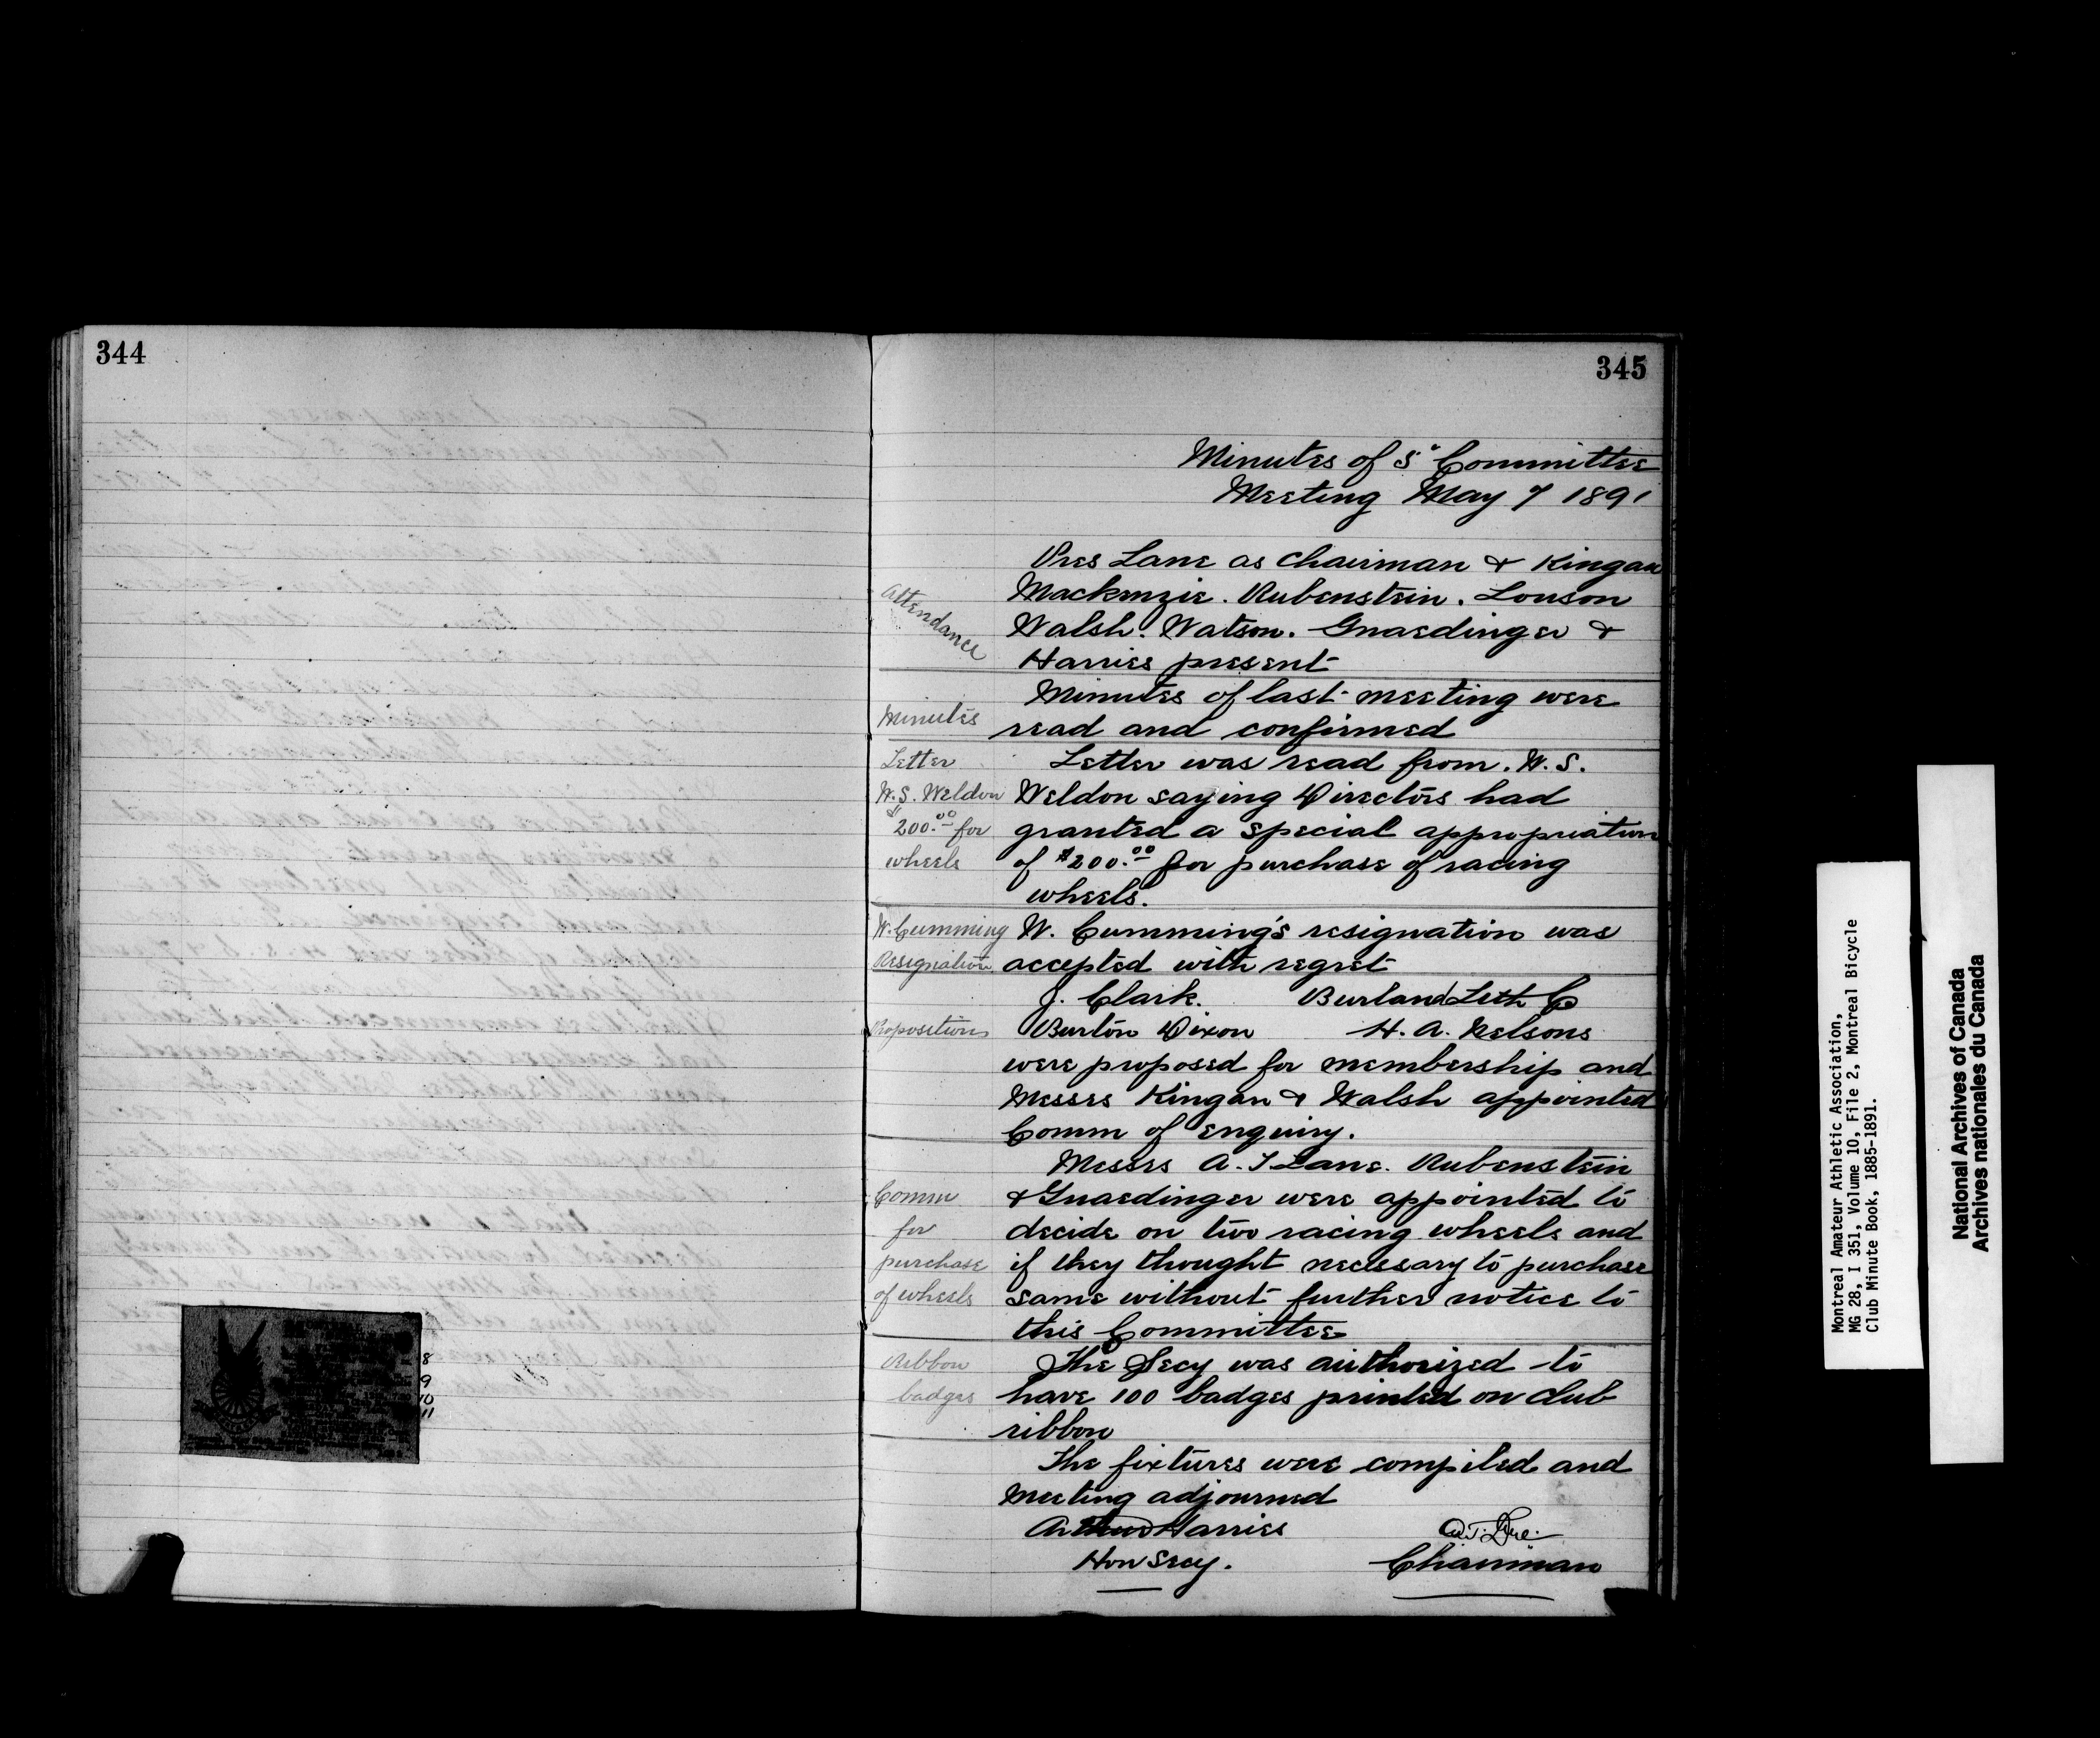 344
8
9
10
11
345
Minutes of 5" Committee
Meeting May 7 1891
Pres Lane as chairman & Kingan
Attendance
Mackenzie. Rubenstein. Louson
Walsh. Watson. Gnaedinger &
Harries present
Minutes of last meeting were
Minutes
read and confirmed
Letter
Letter was read from. W. S.
W. S. Weldon
Weldon saying Directors had
$200.00 for
granted a special appropriation
wheels
of $200.00 for purchase of racing
wheels.
W. Cumming
W. Cumming's resignation was
Resignation
accepted with regret
J. Clark. Burland Lith C
Propositions
Burton Dixon H. A. Nelsons
were proposed for membership and
Messrs Kingan & Walsh appointed
Comm of enquiry.
Messrs A. T Lane. Rubenstein
Comm
& Gnaedinger were appointed to
for
decide on two racing wheels and
purchase
if they thought necessary to purchase
of wheels
same without further notice to
this Committee
Ribbon
The Secy was authorized to
badges
have 100 badges printed on club
ribbon
The fixtures were compiled and
Meeting adjourned
Arthur Harries
A. T. Lane.
Hon Secy.
Chairman
Montreal Amateur Athletic Association,
MG 28, I 351, Volume 10, File 2, Montreal Bicycle
Club Minute Book, 1885-1891.
National Archives of Canada
Archives nationales du Canada